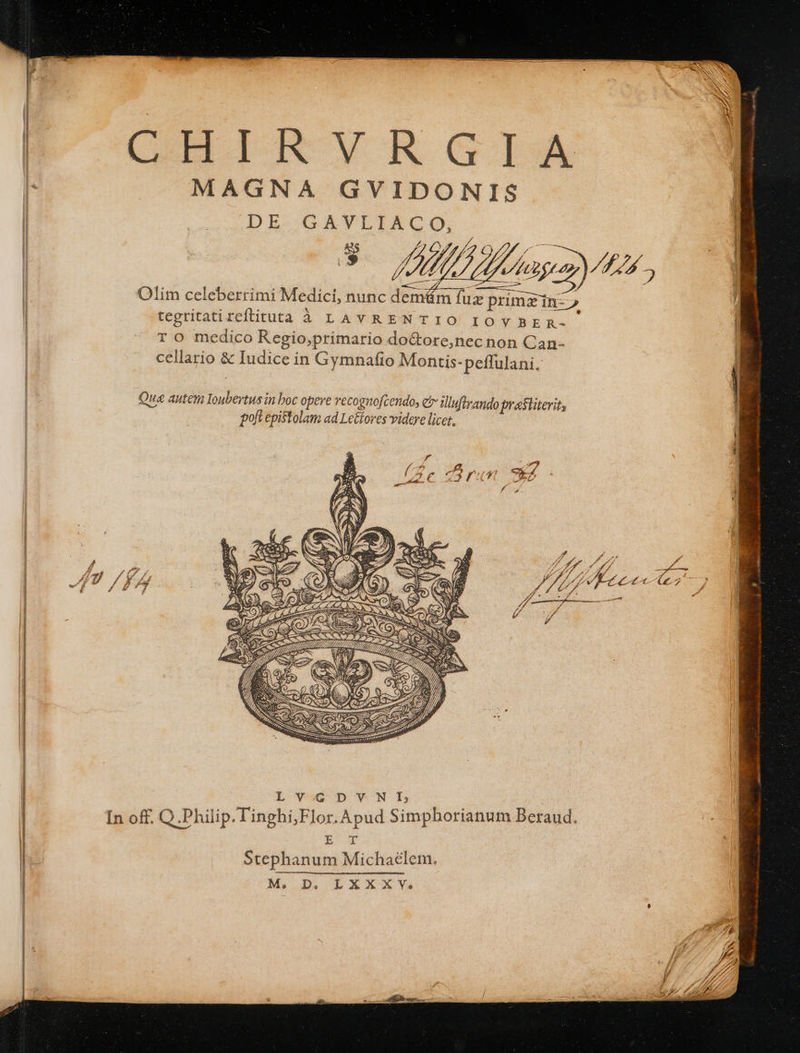 CHIRVRGIA
MAGNA GVIDONIS
DE GAVLIACO,
1826
Olim celeberrimi Medici, nunc demùm ſuæ primæ in-
tegritati reſtituta à LAVRENTIO IOVBER-
TO medico Regio,primario doctore,nec non Can-
cellario & Iudice in Gymnaſio Montis-peſſulani.
Quæ autem Ioubertus in hoc opere recognoſcendo, & illuſtrando præſtiterit,
poſt epiſtolam ad Lectores videre licet.
Hunter
LVGDVNI,
In off. Q. Philip. Tinghi, Flor. Apud Simphorianum Beraud.
ET
Stephanum Michaëlem.
M. D. LXXXV.